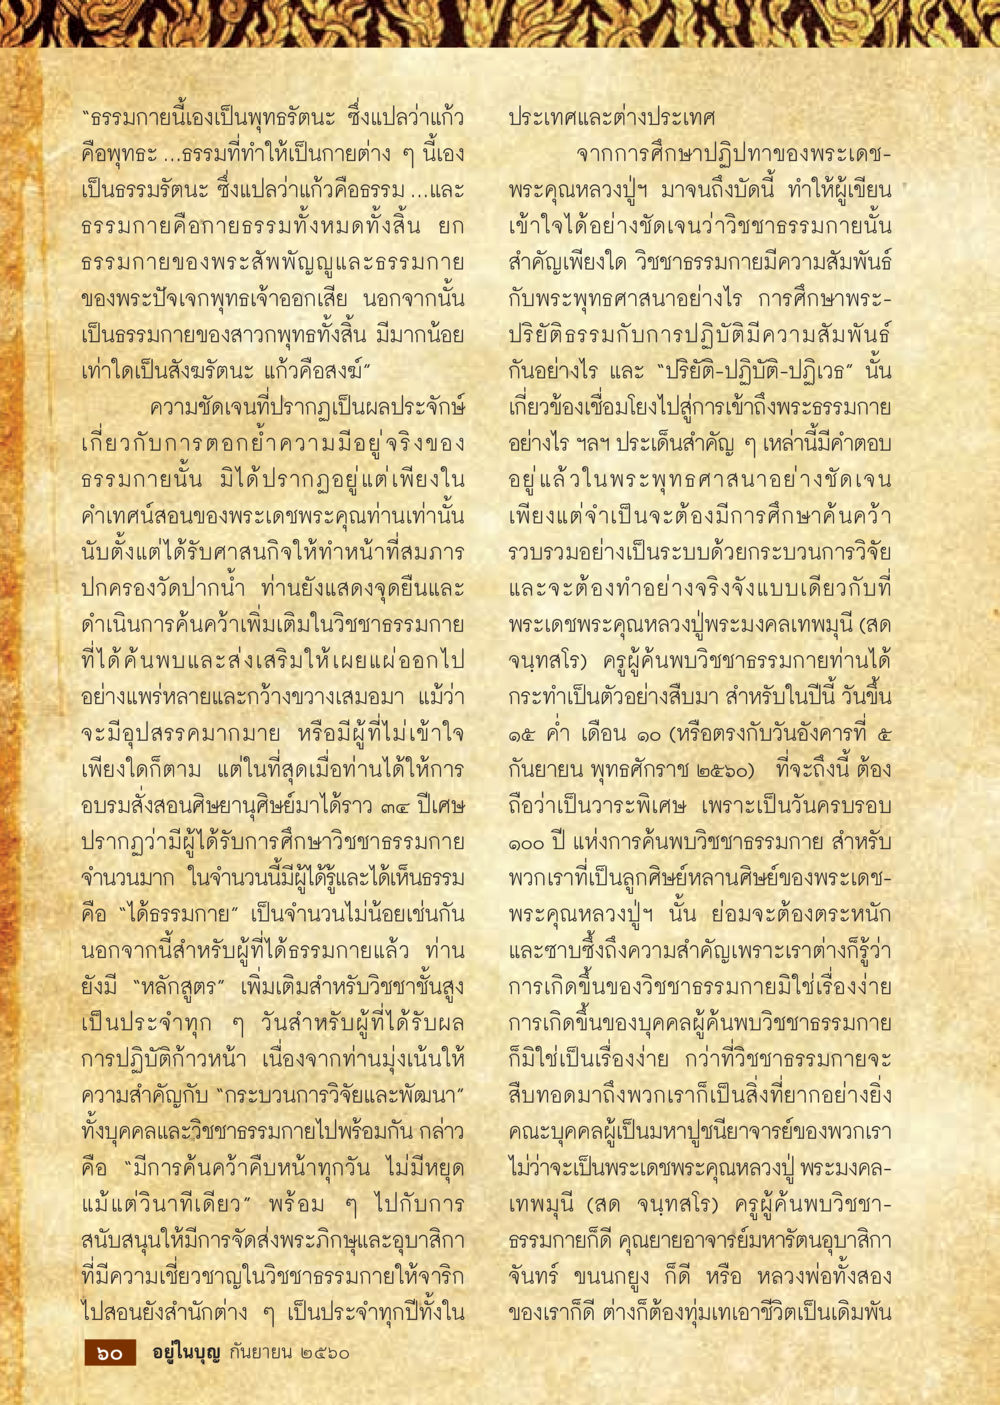 “ธรรมกายนี้เองเป็นพุทธรัตนะ ซึ่งแปลว่าแก้ว
คือพุทธะ ...ธรรมที่ทำให้เป็นกายต่าง ๆ นี้เอง
เป็นธรรมรัตนะ ซึ่งแปลว่าแก้วคือธรรม ...และ
ธรรมกายคือกายธรรมทั้งหมดทั้งสิ้น ยก
ธรรมกายของพระสัพพัญญูและธรรมกาย
ของพระปัจเจกพุทธเจ้าออกเสีย นอกจากนั้น
เป็นธรรมกายของสาวกพุทธทั้งสิ้น มีมากน้อย
เท่าใดเป็นสังฆรัตนะ แก้วคือสงฆ์”
ความชัดเจนที่ปรากฏเป็นผลประจักษ์
เกี่ยวกับการตอกย้ำความมีอยู่จริงของ
ธรรมกายนั้น มิได้ปรากฏอยู่แต่เพียงใน
คำเทศน์สอนของพระเดชพระคุณท่านเท่านั้น
นับตั้งแต่ได้รับศาสนกิจให้ทำหน้าที่สมภาร
ปกครองวัดปากน้ำ ท่านยังแสดงจุดยืนและ
ดำเนินการค้นคว้าเพิ่มเติมในวิชชาธรรมกาย
ที่ได้ค้นพบและส่งเสริมให้เผยแผ่ออกไป
อย่างแพร่หลายและกว้างขวางเสมอมา แม้ว่า
จะมีอุปสรรคมากมาย หรือมีผู้ที่ไม่เข้าใจ
เพียงใดก็ตาม แต่ในที่สุดเมื่อท่านได้ให้การ
อบรมสั่งสอนศิษยานุศิษย์มาได้ราว ๓๔ ปีเศษ
ปรากฏว่ามีผู้ได้รับการศึกษาวิชชาธรรมกาย
จำนวนมาก ในจำนวนนี้มีผู้ได้รู้และได้เห็นธรรม
คือ “ได้ธรรมกาย” เป็นจำนวนไม่น้อยเช่นกัน
นอกจากนี้สำหรับผู้ที่ได้ธรรมกายแล้ว ท่าน
ยังมี “หลักสูตร” เพิ่มเติมสำหรับวิชชาชั้นสูง
เป็นประจำทุก ๆ วันสำหรับผู้ที่ได้รับผล
การปฏิบัติก้าวหน้า เนื่องจากท่านมุ่งเน้นให้
ความสำคัญกับ “กระบวนการวิจัยและพัฒนา”
ทั้งบุคคลและวิชชาธรรมกายไปพร้อมกัน กล่าว
คือ “มีการค้นคว้าคืบหน้าทุกวัน ไม่มีหยุด
แม้แต่วินาทีเดียว” พร้อม ๆ ไปกับการ
สนับสนุนให้มีการจัดส่งพระภิกษุและอุบาสิกา
ที่มีความเชี่ยวชาญในวิชชาธรรมกายให้จาริก
ไปสอนยังสำนักต่าง ๆ เป็นประจำทุกปีทั้งใน
ประเทศและต่างประเทศ
จากการศึกษาปฏิปทาของพระเดช-
พระคุณหลวงปู่ฯ มาจนถึงบัดนี้ ทำให้ผู้เขียน
เข้าใจได้อย่างชัดเจนว่าวิชชาธรรมกายนั้น
สำคัญเพียงใด วิชชาธรรมกายมีความสัมพันธ์
กับพระพุทธศาสนาอย่างไร การศึกษาพระ-
ปริยัติธรรมกับการปฏิบัติมีความสัมพันธ์
กันอย่างไร และ “ปริยัติ-ปฏิบัติ-ปฏิเวธ” นั้น
เกี่ยวข้องเชื่อมโยงไปสู่การเข้าถึงพระธรรมกาย
อย่างไร ฯลฯ ประเด็นสำคัญ ๆ เหล่านี้มีคำตอบ
อยู่แล้วในพระพุทธศาสนาอย่างชัดเจน
เพียงแต่จำเป็นจะต้องมีการศึกษาค้นคว้า
รวบรวมอย่างเป็นระบบด้วยกระบวนการวิจัย
และจะต้องทำอย่างจริงจังแบบเดียวกับที่
พระเดชพระคุณหลวงปู่พระมงคลเทพมุนี (สด
จนฺทสโร) ครูผู้ค้นพบวิชชาธรรมกายท่านได้
กระทำเป็นตัวอย่างสืบมา สำหรับในปีนี้ วันขึ้น
๑๕ ค่ำ เดือน ๑๐ (หรือตรงกับวันอังคารที่ ๕
กันยายน พุทธศักราช ๒๕๖๐) ที่จะถึงนี้ ต้อง
ถือว่าเป็นวาระพิเศษ เพราะเป็นวันครบรอบ
๑๐๐ ปี แห่งการค้นพบวิชชาธรรมกาย สำหรับ
พวกเราที่เป็นลูกศิษย์หลานศิษย์ของพระเดช-
พระคุณหลวงปู่ฯ นั้น ย่อมจะต้องตระหนัก
และซาบซึ้งถึงความสำคัญเพราะเราต่างก็รู้ว่า
การเกิดขึ้นของวิชชาธรรมกายมิใช่เรื่องง่าย
การเกิดขึ้นของบุคคลผู้ค้นพบวิชชาธรรมกาย
ก็มิใช่เป็นเรื่องง่าย กว่าที่วิชชาธรรมกายจะ
สืบทอดมาถึงพวกเราก็เป็นสิ่งที่ยากอย่างยิ่ง
คณะบุคคลผู้เป็นมหาปูชนียาจารย์ของพวกเรา
ไม่ว่าจะเป็นพระเดชพระคุณหลวงปู่ พระมงคล-
เทพมุนี (สด จนฺทสโร) ครูผู้ค้นพบวิชชา-
ธรรมกายก็ดี คุณยายอาจารย์มหารัตนอุบาสิกา
จันทร์ ขนนกยูง ก็ดี หรือ หลวงพ่อทั้งสอง
ของเราก็ดี ต่างก็ต้องทุ่มเทเอาชีวิตเป็นเดิมพัน
๖๐ อยู่ในบุญ กันยายน ๒๕๖๐